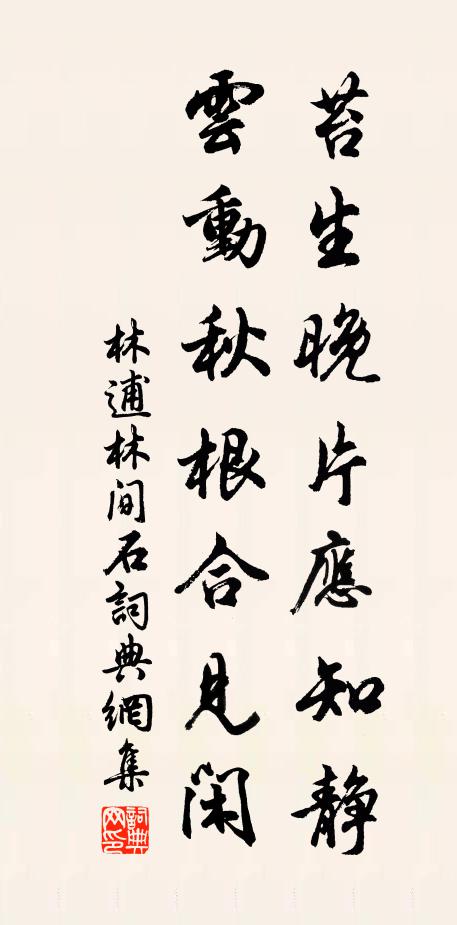 苔生晚片應知静
雲動秋根合見闲
林逋林间石詞典網集
詞典網印